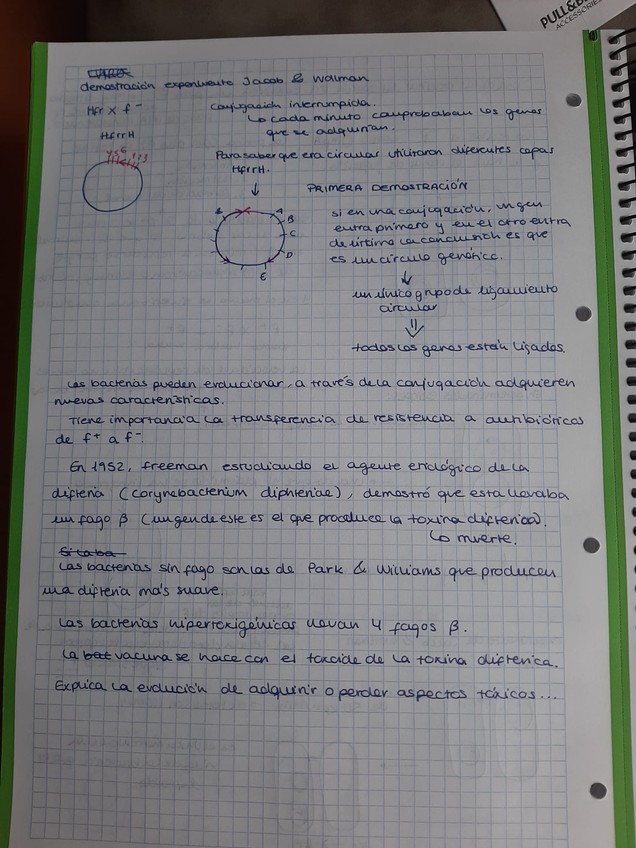 PULL&B
ACCESSORIES
demostración experimento Jacob & Wolman
Hfr x f⁻
conjugación interrumpida.
↳ cada minuto comprobaban los genes
que se adquirían.
HfrrH
Para saber que era circular utilizaron diferentes cepas
HfrrH.
PRIMERA DEMOSTRACIÓN
A
B
C
D
E
si en una conjugación, un gen
entra primero y en el otro entra
de último la conclusión es que
es un círculo genético.
↓
un único grupo de ligamiento
circular
⇓
todos los genes están ligados.
Las bacterias pueden evolucionar, a través de la conjugación adquieren
nuevas características.
Tiene importancia la transferencia de resistencia a antibióticos
de f⁺ a f⁻.
En 1952, freeman estudiando el agente etiológico de la
difteria (corynebacterium diphteriae), demostró que esta llevaba
un fago β (un gen de este es el que produce la toxina difterica).
↳ muerte.
Las bacterias sin fago son las de Park & Williams que producen
una difteria más suave.
Las bacterias hipertoxigénicas llevan 4 fagos β.
La vacuna se hace con el toxoide de la toxina difterica.
Explica la evolución de adquirir o perder aspectos tóxicos...